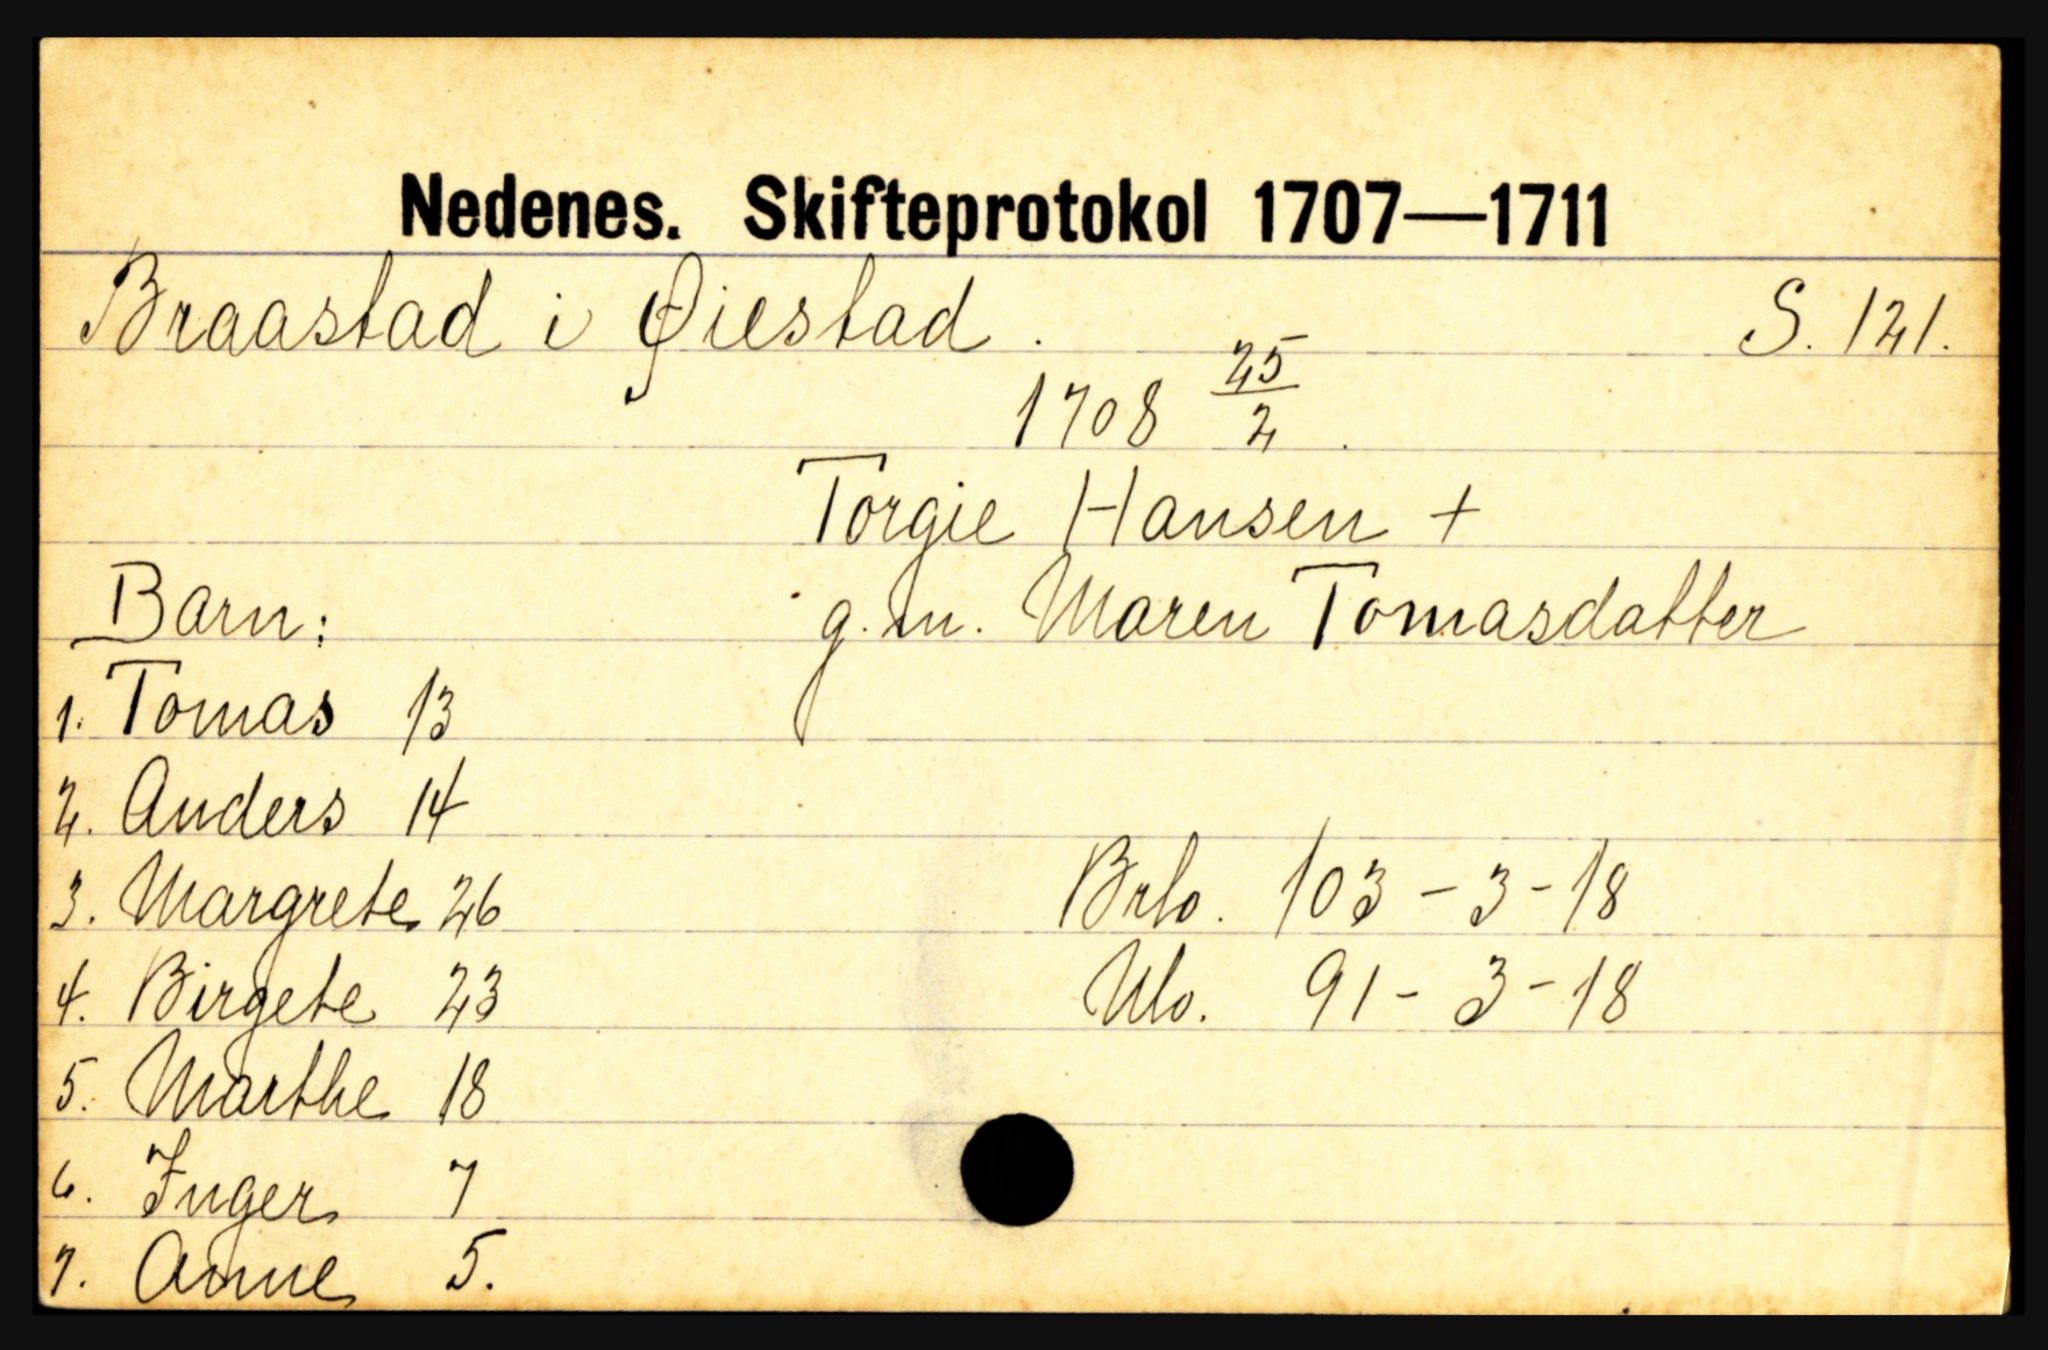 Nedenes. Skifteprotokol 1707—1711
Braastad i Øiestad. S. 121.
1708 25/2.
Torgie Hansen +
g. m. Maren Tomasdatter
Barn:
1. Tomas 13
2. Anders 14
3. Margrete 26
4. Birgete 23
5. Marthe 18
6. Inger 7
7. Anne 5.
Brlo. 103 - 3 - 18
Ulo. 91 - 3 - 18